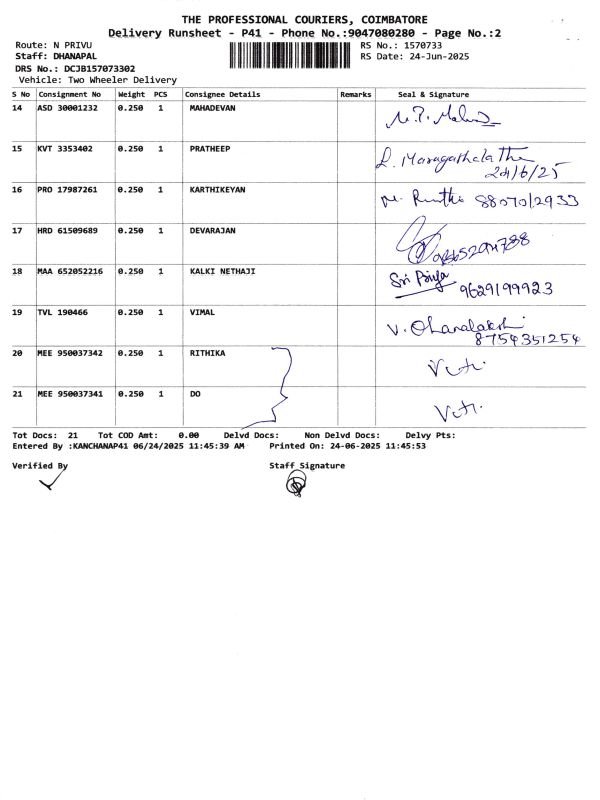 THE PROFESSIONAL COURIERS, COIMBATORE
Delivery Runsheet - P41 - Phone No.:9047080280 - Page No.:2
Route: N PRIVU RS No.: 1570733
Staff: DHANAPAL RS Date: 24-Jun-2025
DRS No.: DCJB157073302
Vehicle: Two Wheeler Delivery
S No Consignment No Weight PCS Consignee Details Remarks Seal & Signature
14 ASD 30001232 0.250 1 MAHADEVAN
15 KVT 3353402 0.250 1 PRATHEEP
24/6/25
16 PRO 17987261 0.250 1 KARTHIKEYAN 8807012933
17 HRD 61509689 0.250 1 DEVARAJAN
18 MAA 652052216 0.250 1 KALKI NETHAJI Sri Priya
9629199923
19 TVL 190466 0.250 1 VIMAL
8754351254
20 MEE 950037342 0.250 1 RITHIKA
21 MEE 950037341 0.250 1 DO
Tot Docs: 21 Tot COD Amt: 0.00 Delvd Docs: Non Delvd Docs: Delvy Pts:
Entered By :KANCHANAP41 06/24/2025 11:45:39 AM Printed On: 24-06-2025 11:45:53
Verified By Staff Signature